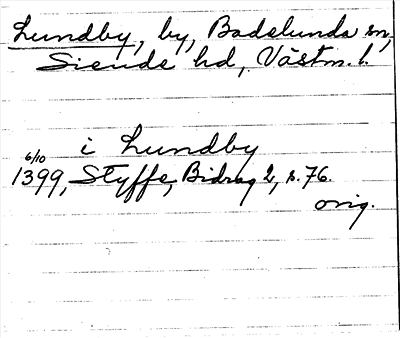 Lundby, by, Badelunda sn,
Siende hd, Västm. l.
i Lundby
6/10
1399, Styffe, Bidrag 2, s. 76.
orig.